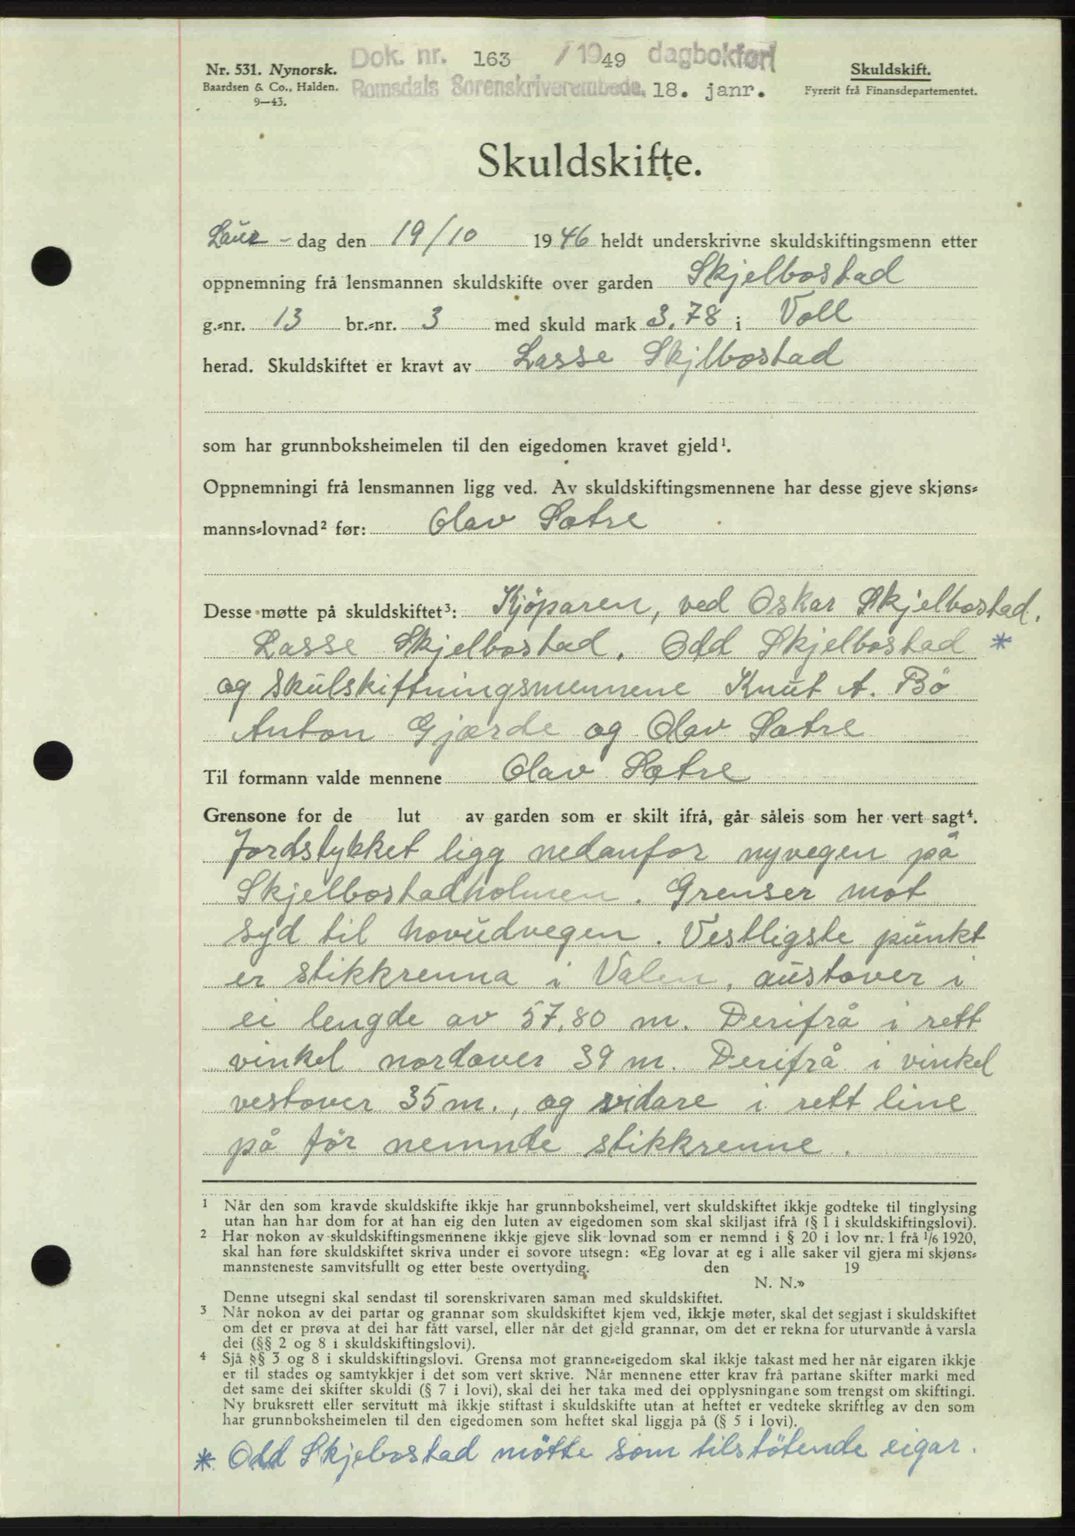 Nr. 531. Nynorsk.
Baardsen & Co., Halden.
9—43.
Dok. nr. 163 / 1949 dagbokført
Romsdals Sorenskriverembede, 18. janr.
Skuldskift.
Fyrerit frå Finansdepartementet.
Skuldskifte.
Laur - dag den 19/10 1946 heldt underskrivne skuldskiftingsmenn etter
oppnemning frå lensmannen skuldskifte over garden Skjelbostad
g.-nr. 13 br.-nr. 3 med skuld mark 3.78 i Voll
herad. Skuldskiftet er kravt av Lasse Skjlbostad
som har grunnboksheimelen til den eigedomen kravet gjeld¹.
Oppnemningi frå lensmannen ligg ved. Av skuldskiftingsmennene har desse gjeve skjøns-
manns-lovnad² før: Olav Sætre
Desse møtte på skuldskiftet³: Kjöparen, ved Oskar Skjelbostad.
Lasse Skjelbostad. Odd Skjelbostad *
og skulskiftningsmennene Knut A. Bö
Anton Gjærde og Olav Sætre
Til formann valde mennene Olav Sætre
Grensone for de lut av garden som er skilt ifrå, går såleis som her vert sagt⁴.
Jordstykket ligg nedanfor nyvegen på
Skjelbostadholmen. Grenser mot
syd til hovudvegen. Vestligste punkt
er stikkrenna i Valen, austover i
ei lengde av 57,80 m. Derifrå i rett
vinkel nordover 39 m. Derifrå i vinkel
vestover 35 m., og vidare i rett line
på för nemnde stikkrenne.
¹ Når den som kravde skuldskifte ikkje har grunnboksheimel, vert skuldskiftet ikkje godteke til tinglysing
utan han har dom for at han eig den luten av eigedomen som skal skiljast ifrå (§ 1 i skuldskiftingslovi).
² Har nokon av skuldskiftingsmennene ikkje gjeve slik lovnad som er nemnd i § 20 i lov nr. 1 frå 1/6 1920,
skal han føre skuldskiftet skriva under ei sovore utsegn: «Eg lovar at eg i alle saker vil gjera mi skjøns-
mannsteneste samvitsfullt og etter beste overtyding. den 19
N. N.»
Denne utsegni skal sendast til sorenskrivaren saman med skuldskiftet.
³ Når nokon av dei partar og grannar som skuldskiftet kjem ved, ikkje møter, skal det segjast i skuldskiftet
om det er prøva at dei har fått varsel, eller når det gjeld grannar, om det er rekna for uturvande å varsla
dei (§§ 2 og 8 i skuldskiftingslovi).
⁴ Sjå §§ 3 og 8 i skuldskiftingslovi. Grensa mot granne-eigedom skal ikkje takast med her når eigaren ikkje
er til stades og samtykkjer i det som vert skrive. Når mennene etter krav frå partane skifter marki med
det same dei skifter skuldi (§ 7 i lovi), skal dei her taka med dei opplysningane som trengst om skiftingi.
Ny bruksrett eller servitutt må ikkje stiftast i skuldskifte utan at heftet er vedteke skriftleg av den som
har grunnboksheimelen til den eigedomen som heftet skal liggja på (§ 5 i lovi).
* Odd Skjebostad mötte som tilstötende eigar.